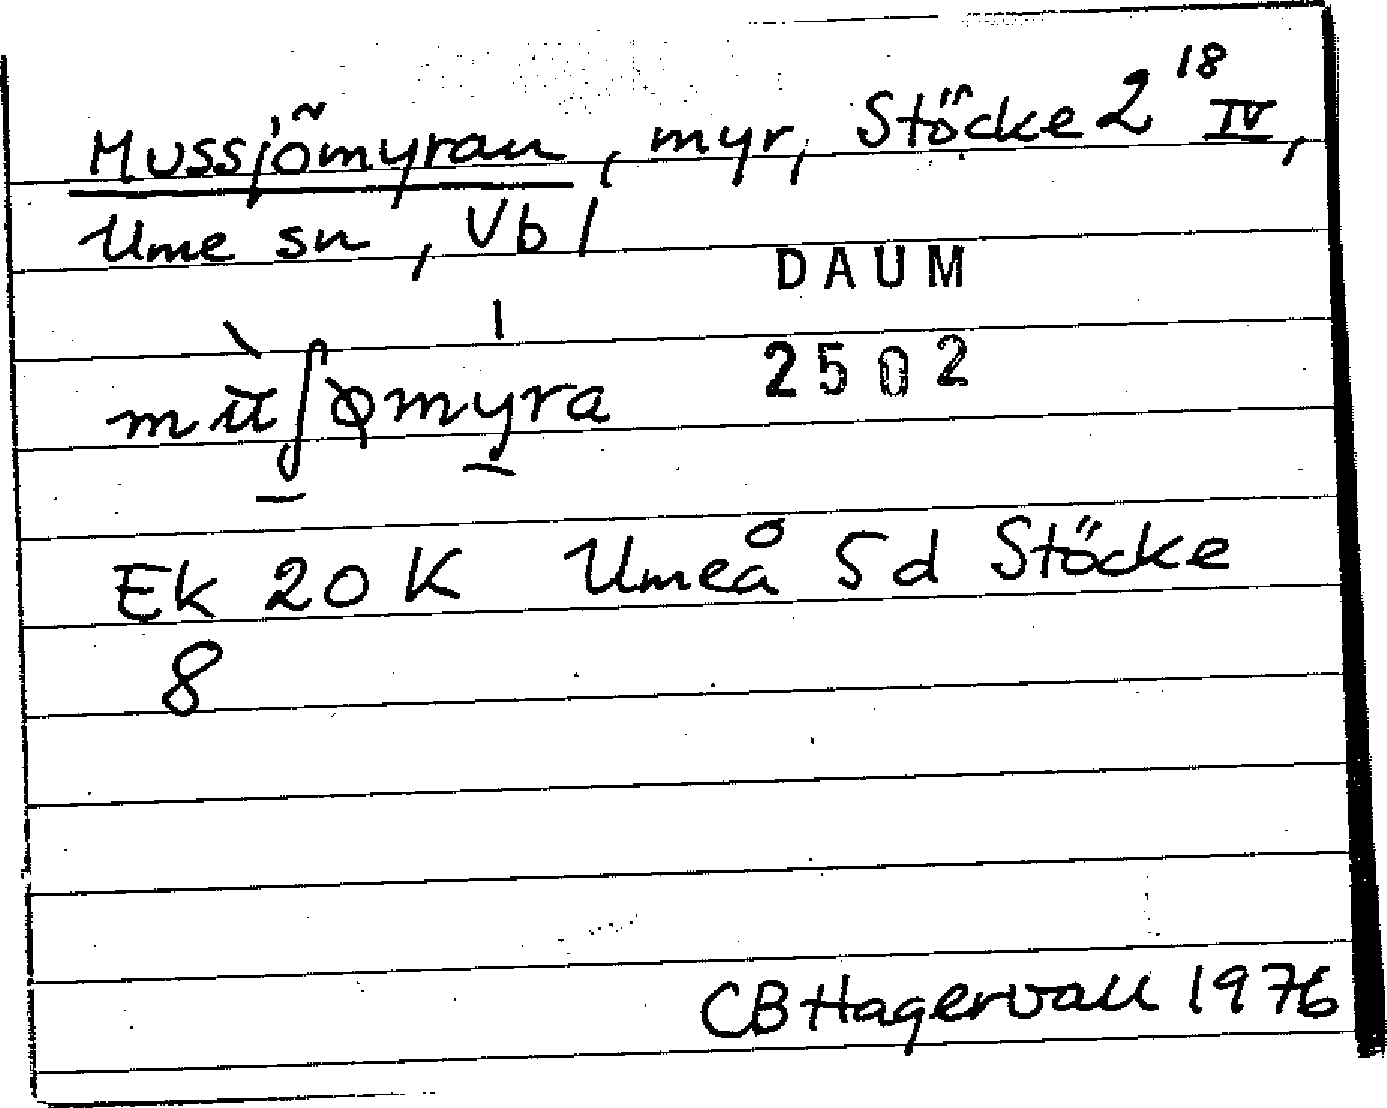 Mussjömyran, myr, Stöcke 2 18 IV,
Ume sn, Vb l
DAUM
2502
Ek 20 K Umeå 5 d Stöcke
8
CB Hagervall 1976